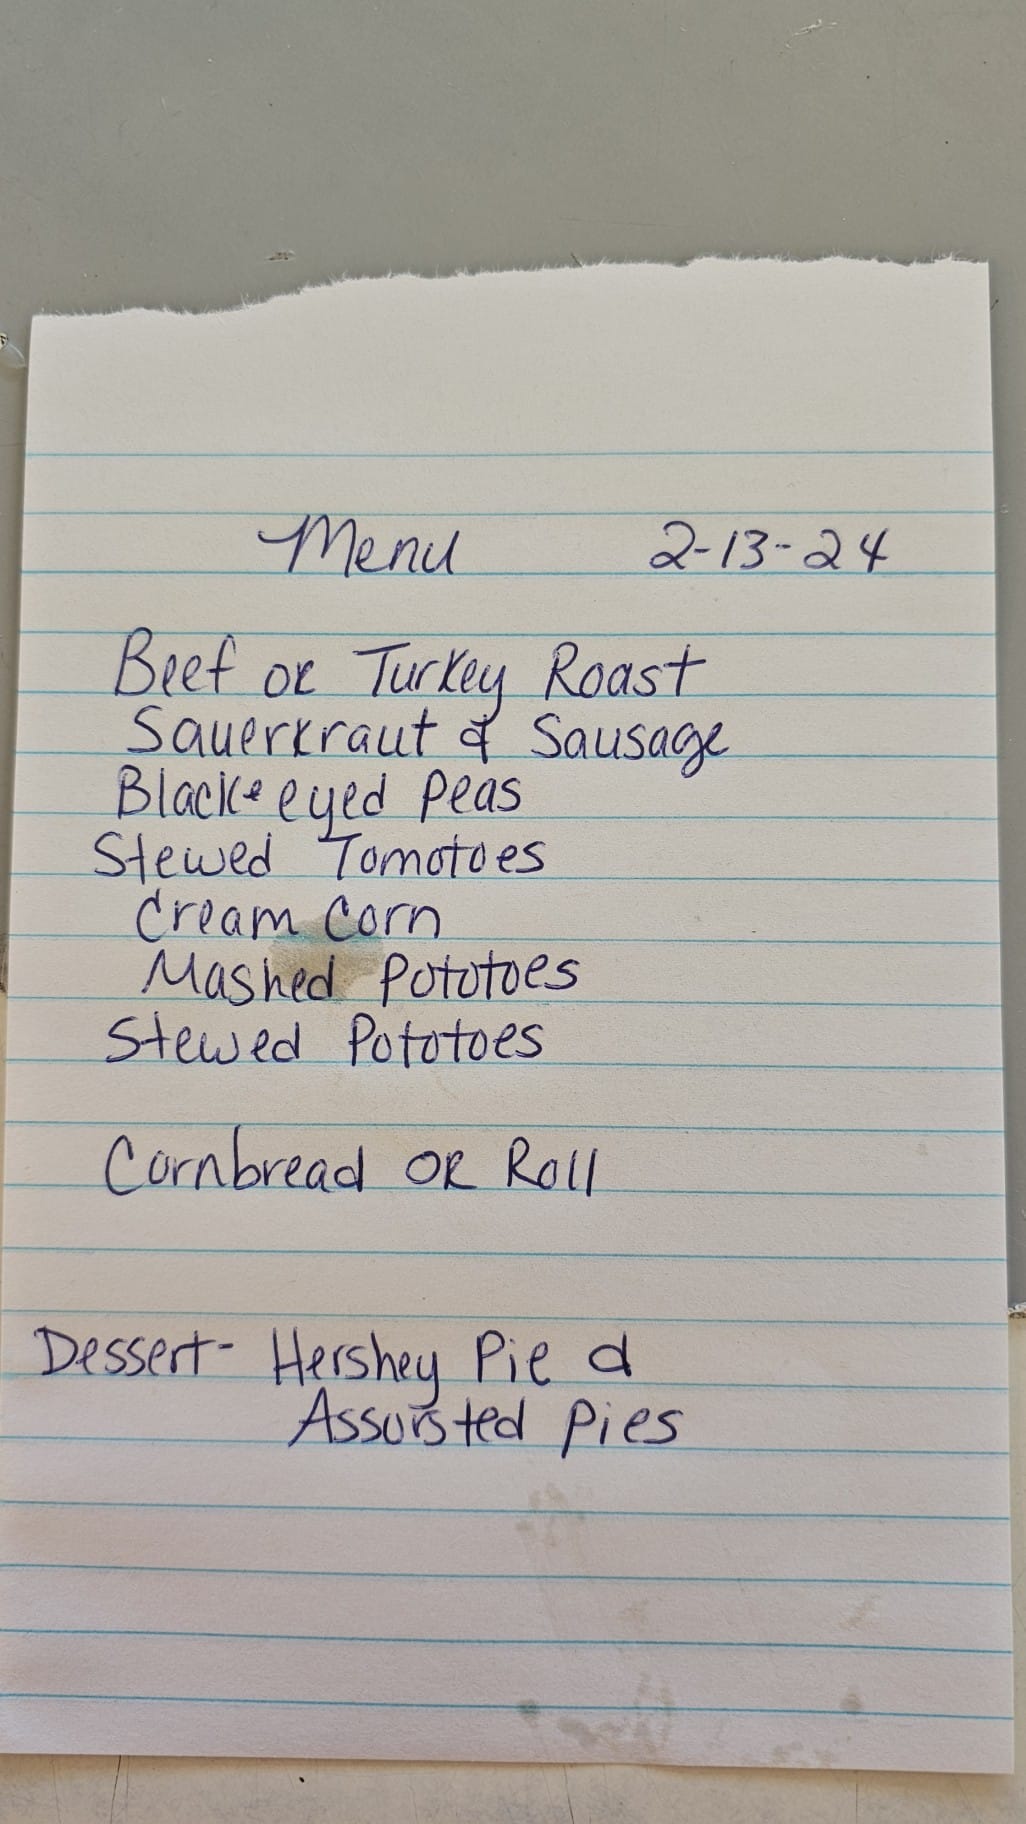 Menu 2-13-24
Beef or Turkey Roast
Sauerkraut & Sausage
Black-eyed Peas
Stewed Tomotoes
Cream Corn
Mashed Pototoes
Stewed Pototoes
Cornbread OR Roll
Dessert- Hershey Pie &
Assorsted Pies